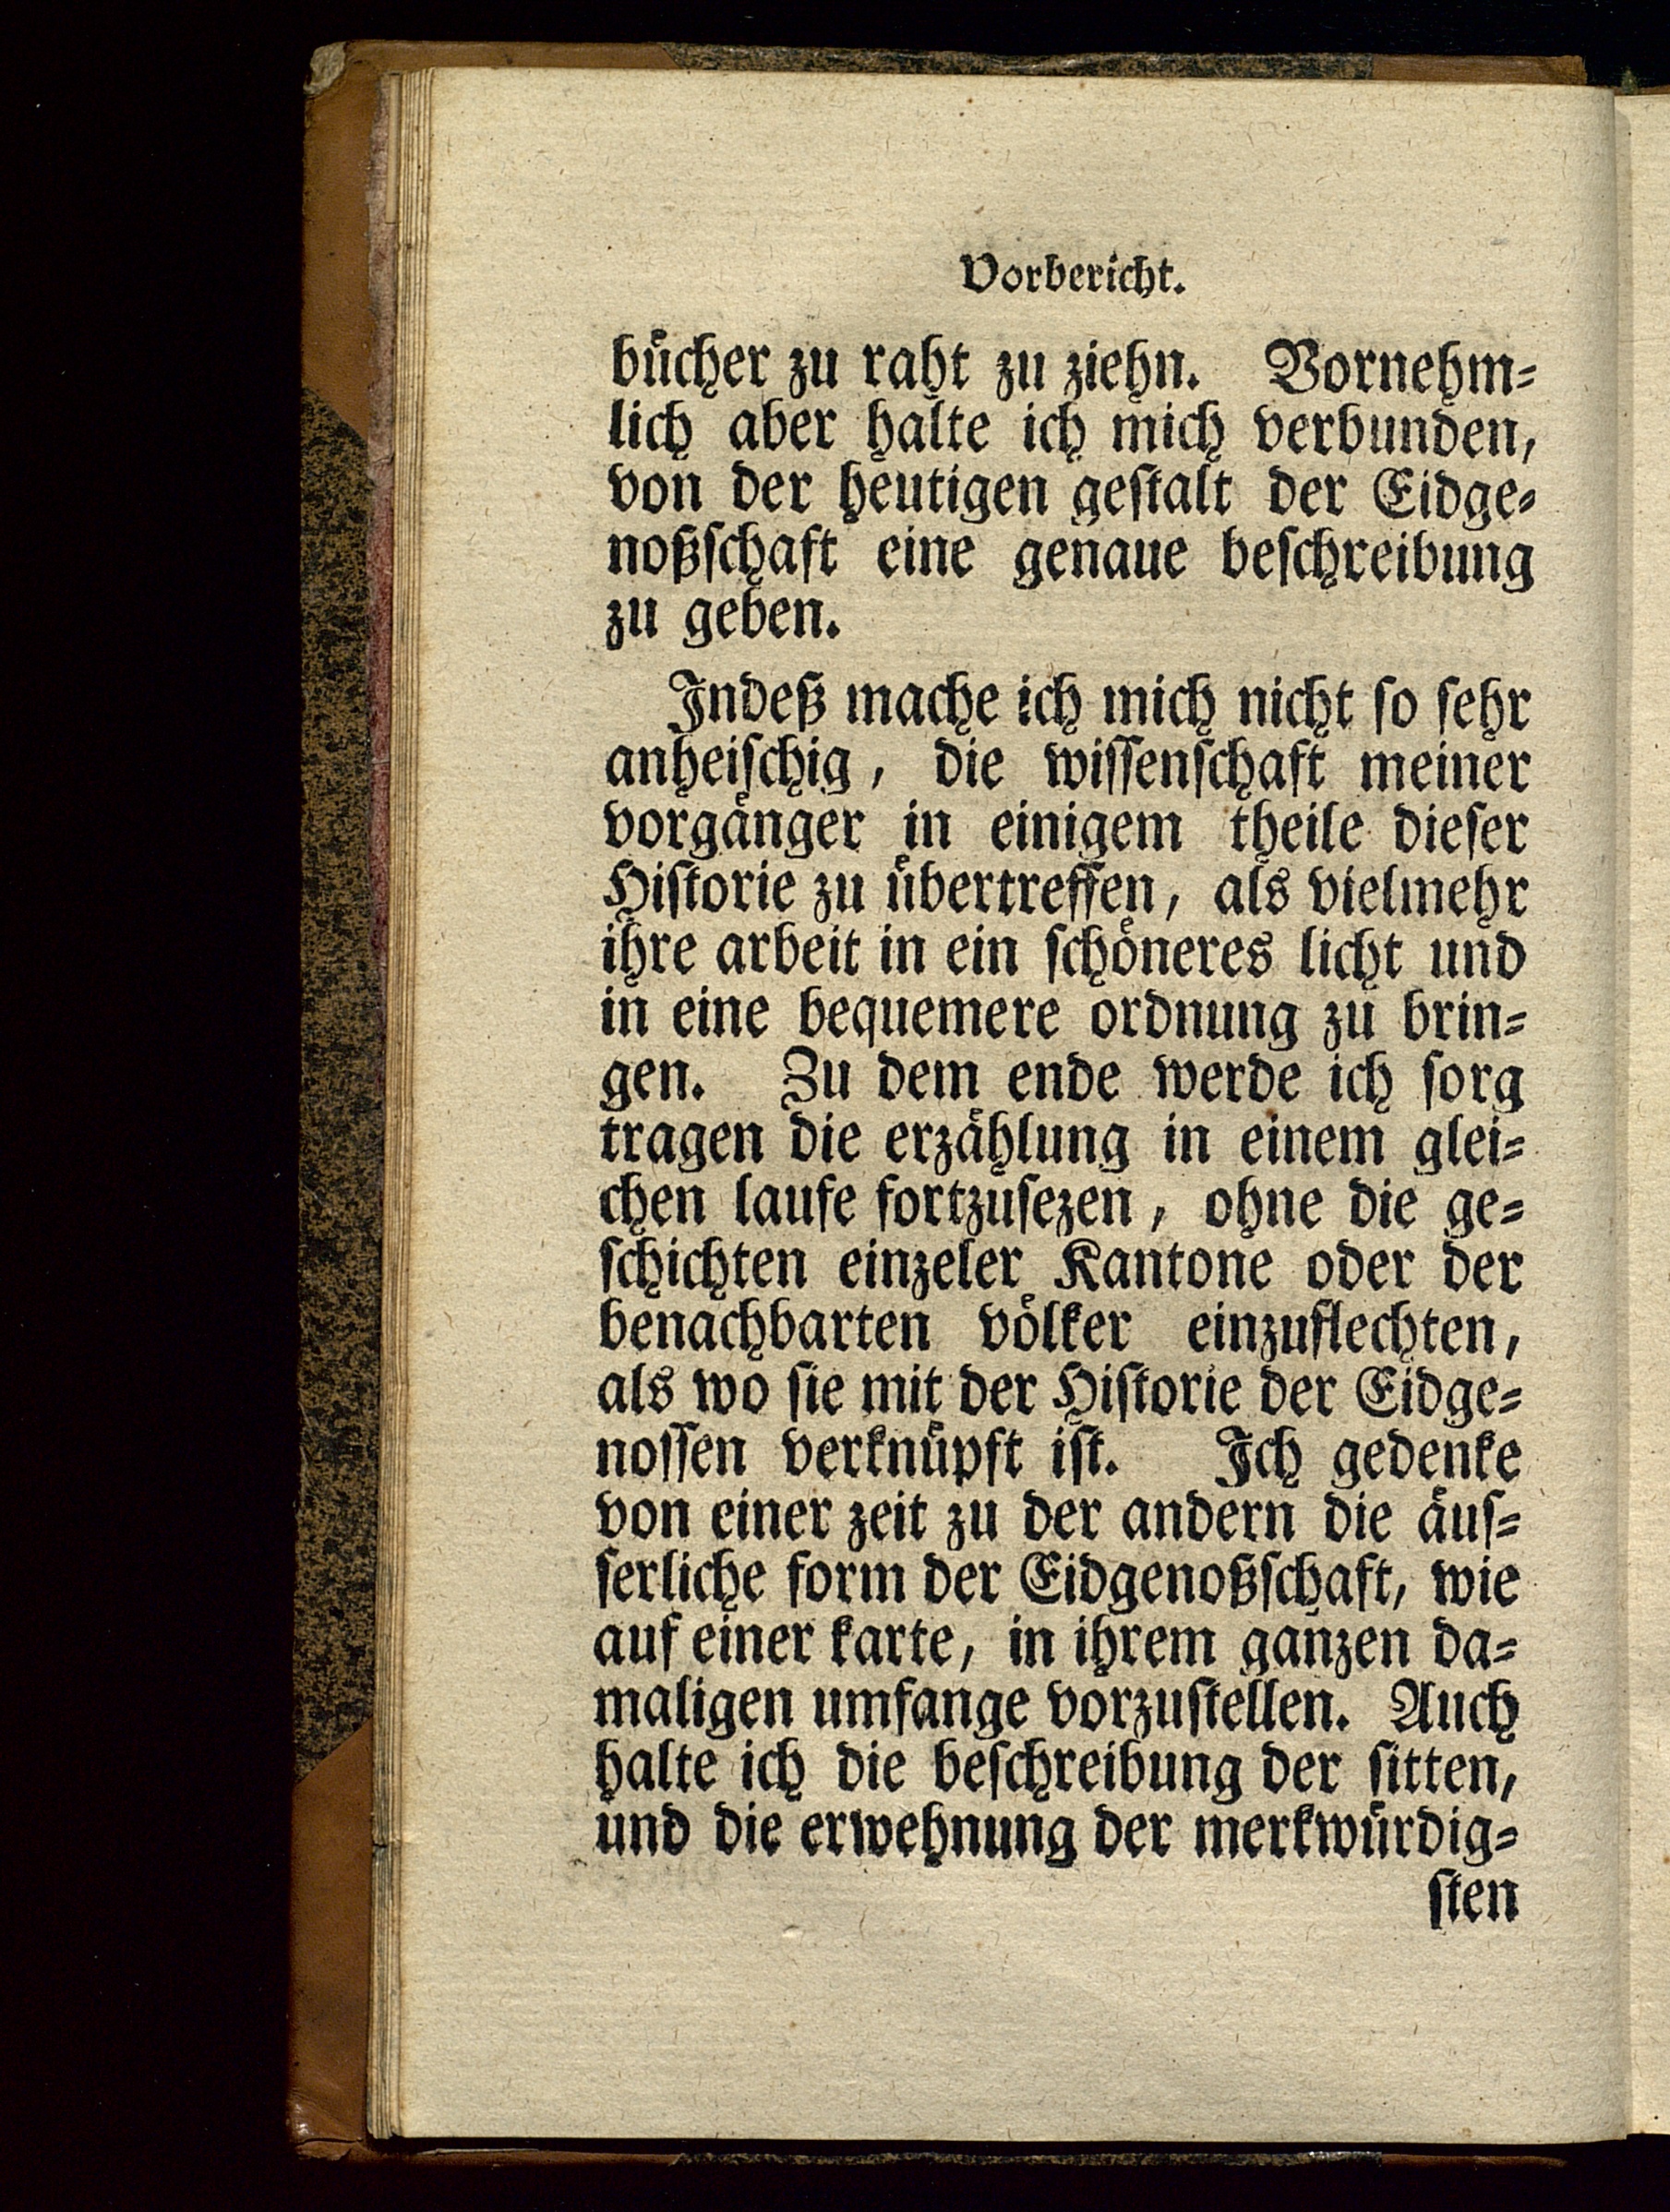 Vorbericht.
bücher zu raht zu ziehn. Vornehm-
lich aber halte ich mich verbunden,
von der heutigen gestalt der Eidge-
noßschaft eine genaue beschreibung
zu geben.
Indeß mache ich mich nicht so sehr
anheischig, die wissenschaft meiner
vorgänger in einigem theile dieser
Historie zu übertreffen, als vielmehr
ihre arbeit in ein schöneres licht und
in eine bequemere ordnung zu brin-
gen. Zu dem ende werde ich sorg
tragen die erzählung in einem glei-
chen laufe fortzusezen, ohne die ge-
schichten einzeler Kantone oder der
benachbarten völker einzuflechten,
als wo sie mit der Historie der Eidge-
nossen verknüpft ist. Ich gedenke
von einer zeit zu der andern die äus-
serliche form der Eidgenoßschaft, wie
auf einer karte, in ihrem ganzen da-
maligen umfange vorzustellen. Auch
halte ich die beschreibung der sitten,
und die erwehnung der merkwürdig-
sten